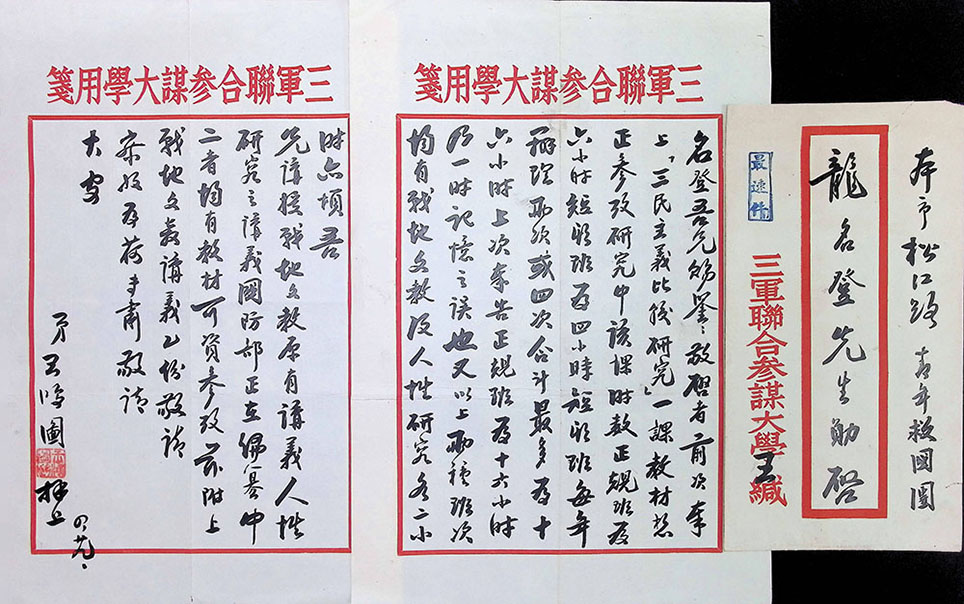 本市松江路 青年救國團
龍名登先生勛啓
三軍聯合參謀大學王緘
最速件
三軍聯合參謀大學用箋
名登吾兄勛鑒：敬啓者前次奉
上「三民主義比較研究」一課教材
正參攷研究中該課時數正規班為
六小時短期班為四小時短期班每年
辦理兩次或四次合計最多為十
六小時上次奉告正規班為十六小時
乃一時記憶之誤也又以上兩種班次
均有戰地文教及人性研究各二小
三軍聯合參謀大學用箋
時亦煩吾
兄講授戰地文教原有講義人性
研究之講義國防部正在編纂中
二者均有教材可資參攷茲附上
戰地文教講義乙份敬請
察收為荷專肅敬請
大安
弟王鴻圖拜上